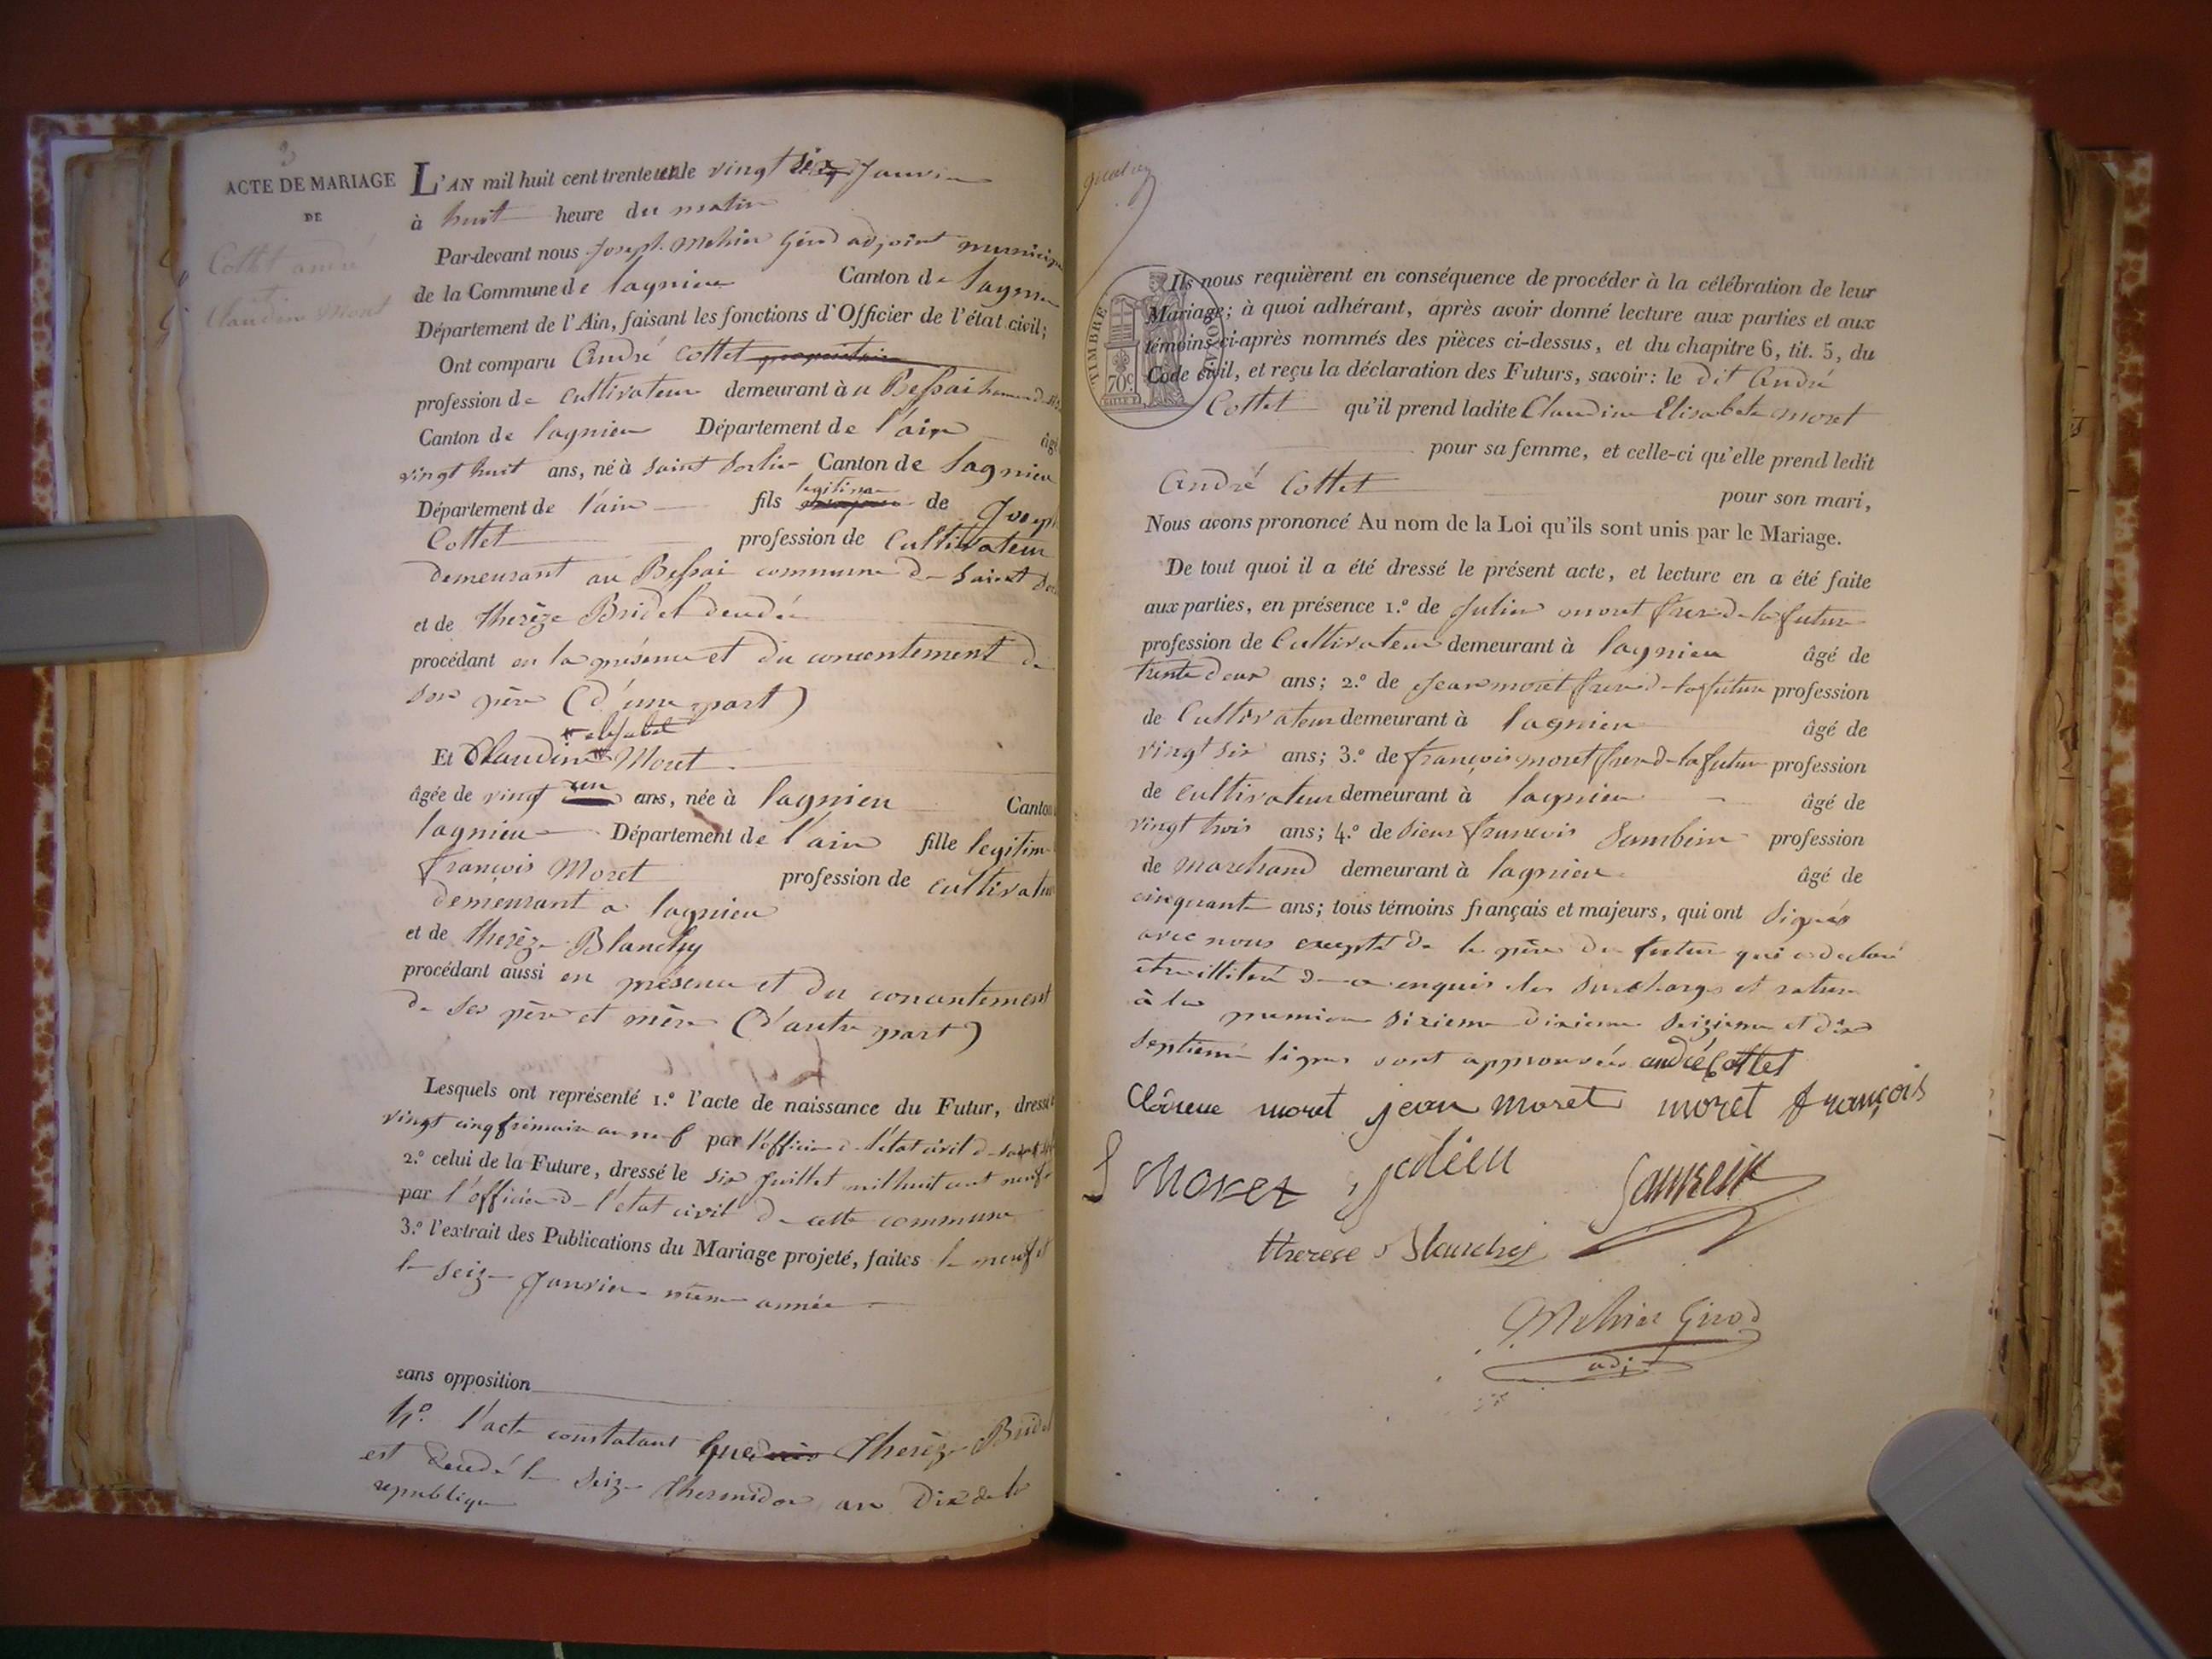 3
ACTE DE MARIAGE
DE
Cottet andré
Claudine Moret
L'AN mil huit cent trente un le vingt six Janvier
à huit heure du matin
Par-devant nous Joseph Mehier Girod adjoint municip
de la Commune de lagnieu Canton de lagnieu
Département de l'Ain, faisant les fonctions d'Officier de l'état civil;
Ont comparu André Cottet propriétaire
profession de cultivateur demeurant à u Bessai
Canton de lagnieu Département de l'ain âgé
vingt huit ans, né à saint Sorlin Canton de Lagnieu
Département de l'ain fils legitime de Joseph
Cottet profession de Cultivateur
demeurant au Bessai commune de Saint Sor
et de Therèze Bridet deudée
procédant en la présence et du concentement de
son père (d'une part)
* elisabet
Et Claudine * Moret
âgée de vingt un ans, née à lagnieu Canton
lagnieu Département de l'ain fille legitim
françois Moret profession de cultivateur
demeurant a lagnieu
et de Therèze Blanchy
procédant aussi en présence et du concentement
de ses père et mère (d'autre part)
Lesquels ont représenté 1.° l'acte de naissance du Futur, dressé
vingt cinq frimaire an neuf par l'officier de l'état civil de saint
2.° celui de la Future, dressé le six Juillet mil huit cent neuf
par l'officier de l'etat civil de cette commune
3.° l'extrait des Publications du Mariage projeté, faites le neuf et
le seize Janvier même année
sans opposition
4.° l'acte constatant que Therèze Bridet
est deudé le seize thermidor an Dix de la
republique
TIMBRE ROYAL
70c
Ils nous requièrent en conséquence de procéder à la célébration de leur
Mariage; à quoi adhérant, après avoir donné lecture aux parties et aux
témoins ci-après nommés des pièces ci-dessus, et du chapitre 6, tit. 5, du
Code civil, et reçu la déclaration des Futurs, savoir: le dit André
Cottet qu'il prend ladite Claudine Elisabete moret
pour sa femme, et celle-ci qu'elle prend ledit
André Cottet pour son mari,
Nous avons prononcé Au nom de la Loi qu'ils sont unis par le Mariage.
De tout quoi il a été dressé le présent acte, et lecture en a été faite
aux parties, en présence 1.° de Julien moret frere de la future
profession de Cultivateur demeurant à lagnieu âgé de
trente deux ans; 2.° de Jean moret frere de la future profession
de Cultivateur demeurant à lagnieu âgé de
vingt six ans; 3.° de françois moret frere de la future profession
de cultivateur demeurant à lagnieu âgé de
vingt trois ans; 4.° de sieur francois Sambein profession
de marchand demeurant à lagnieu âgé de
cinquante ans; tous témoins français et majeurs, qui ont signés
avec nous excepté de le père du futur qui a declaré
être illitéré de ce enquis les surcharges et rature
à la premiere sixieme dixieme seizieme et dix
septieme lignes sont approuvées andré Cottet
moret jean moret moret françois
Moret julien Sambein
therese Blanchy
Mehier Girod
adj